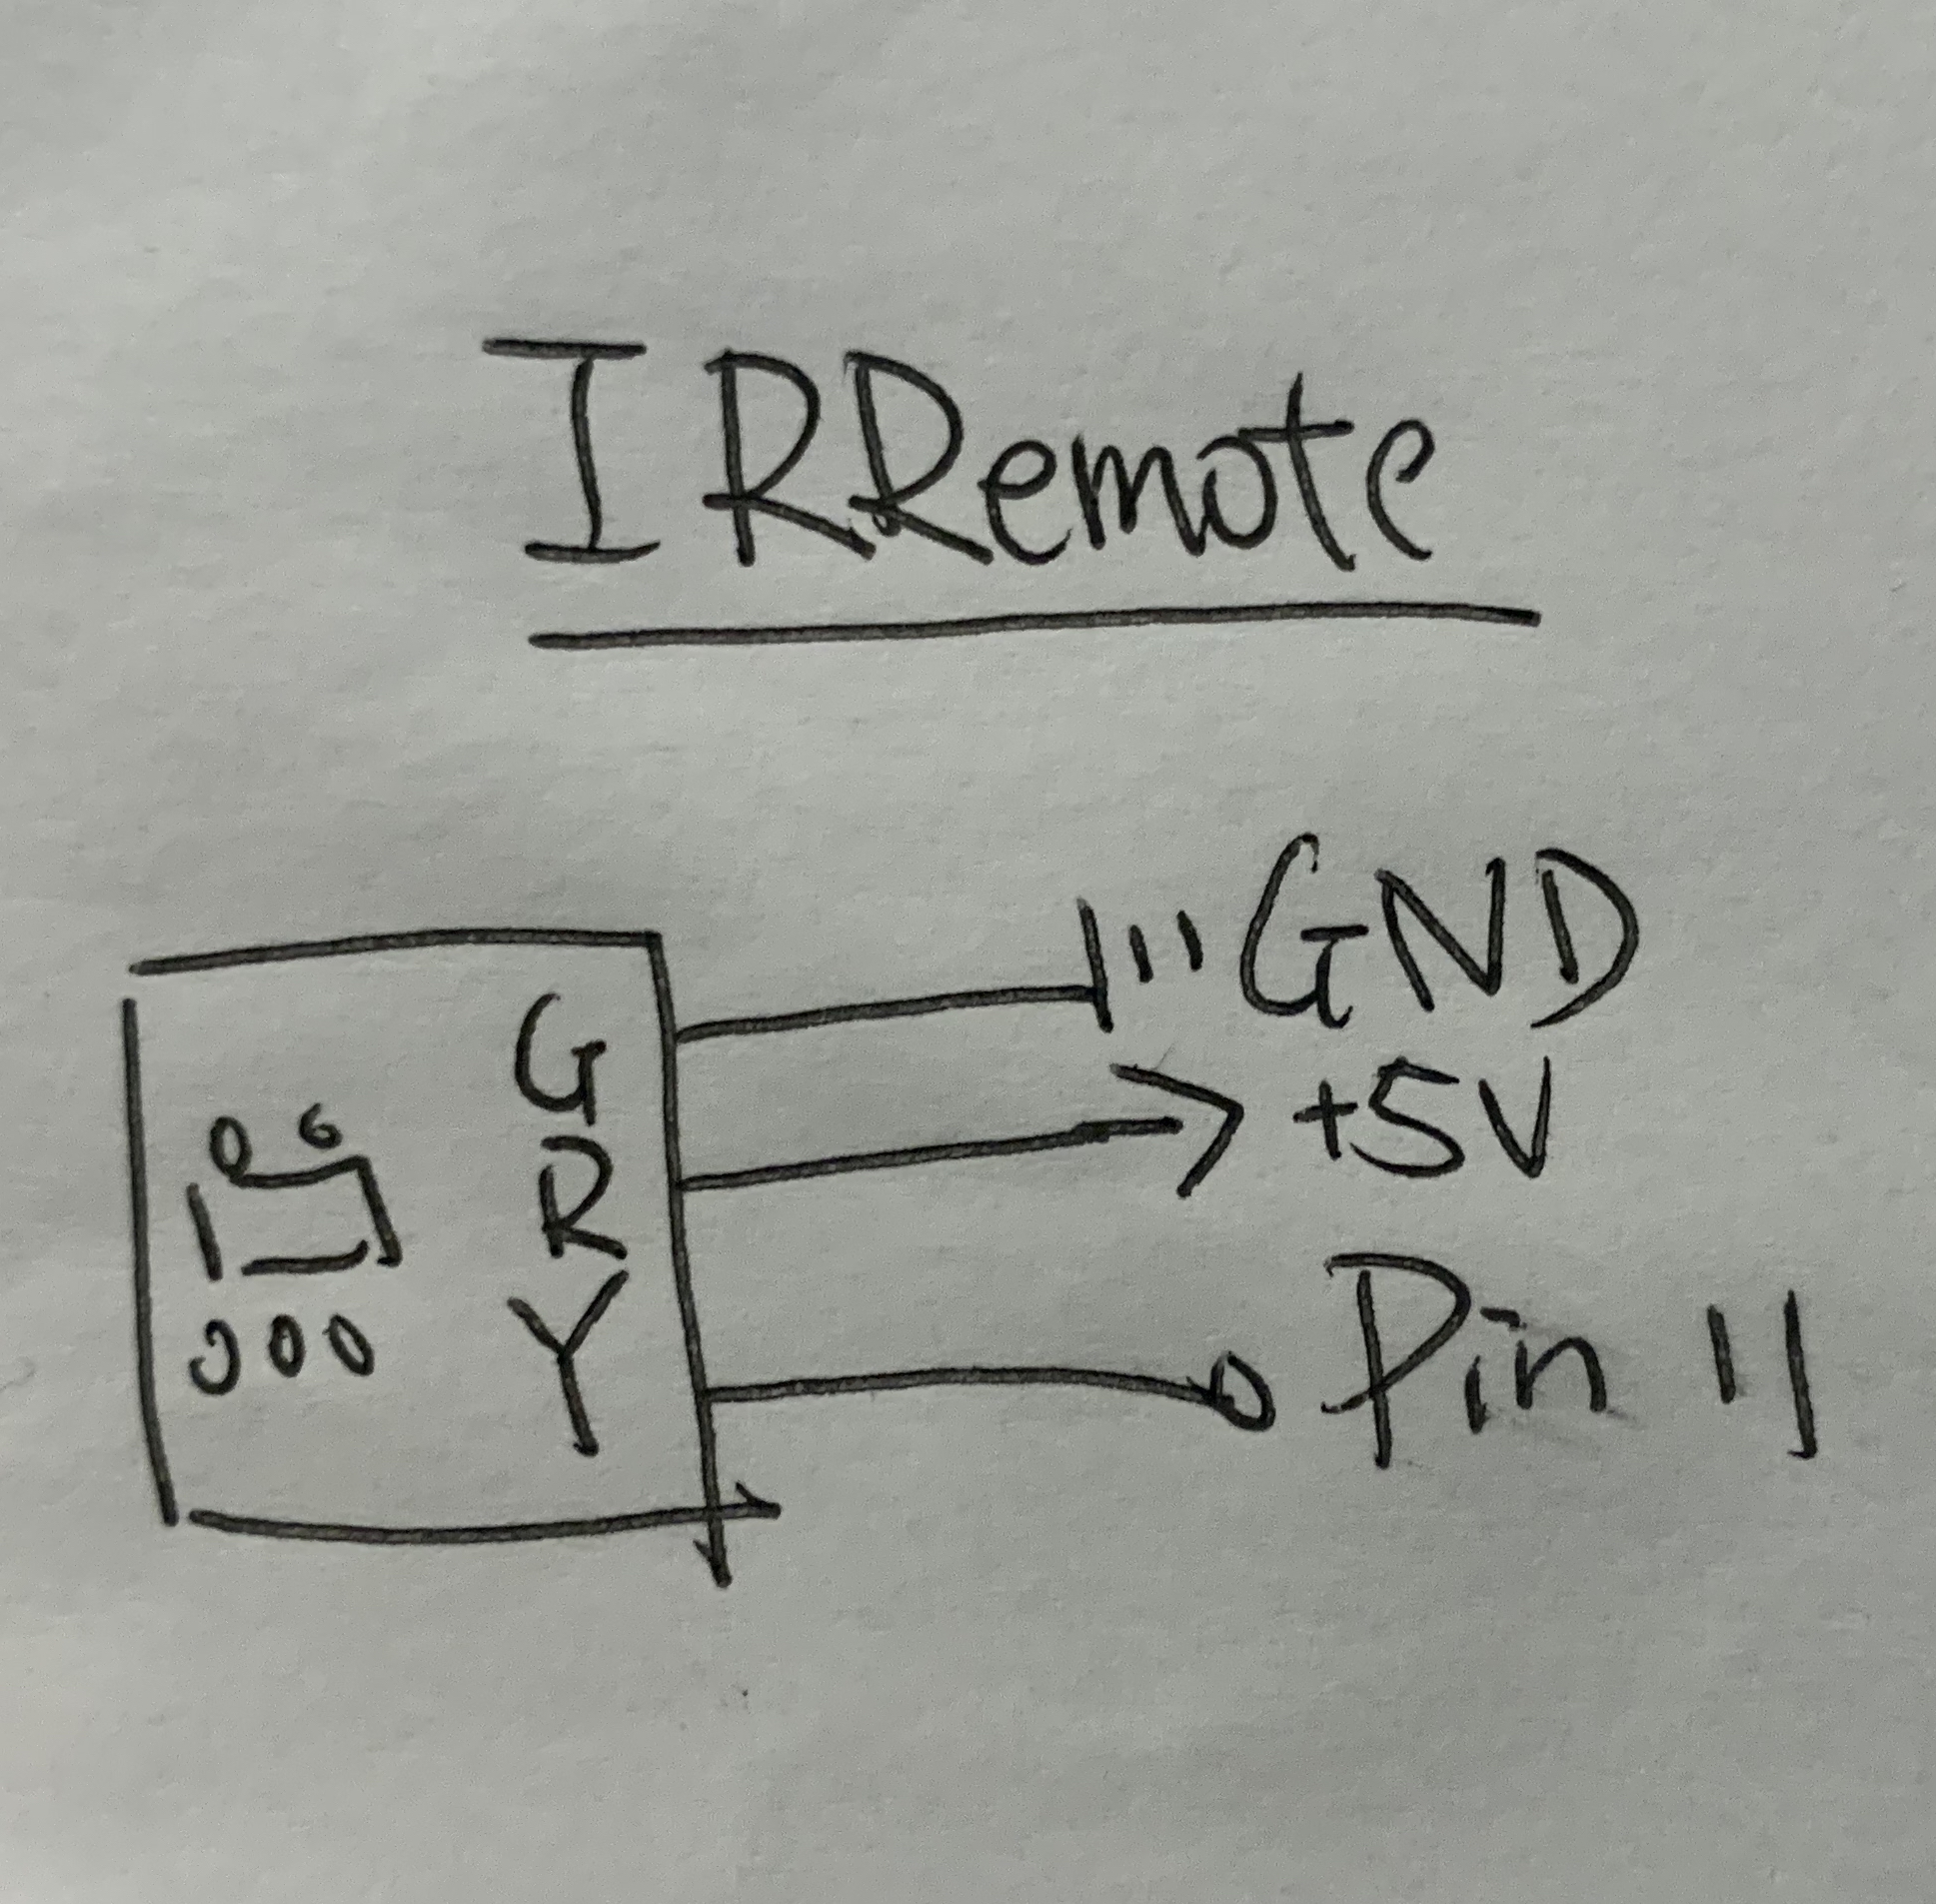 IRRemote
G GND
R +5V
Y Pin 11